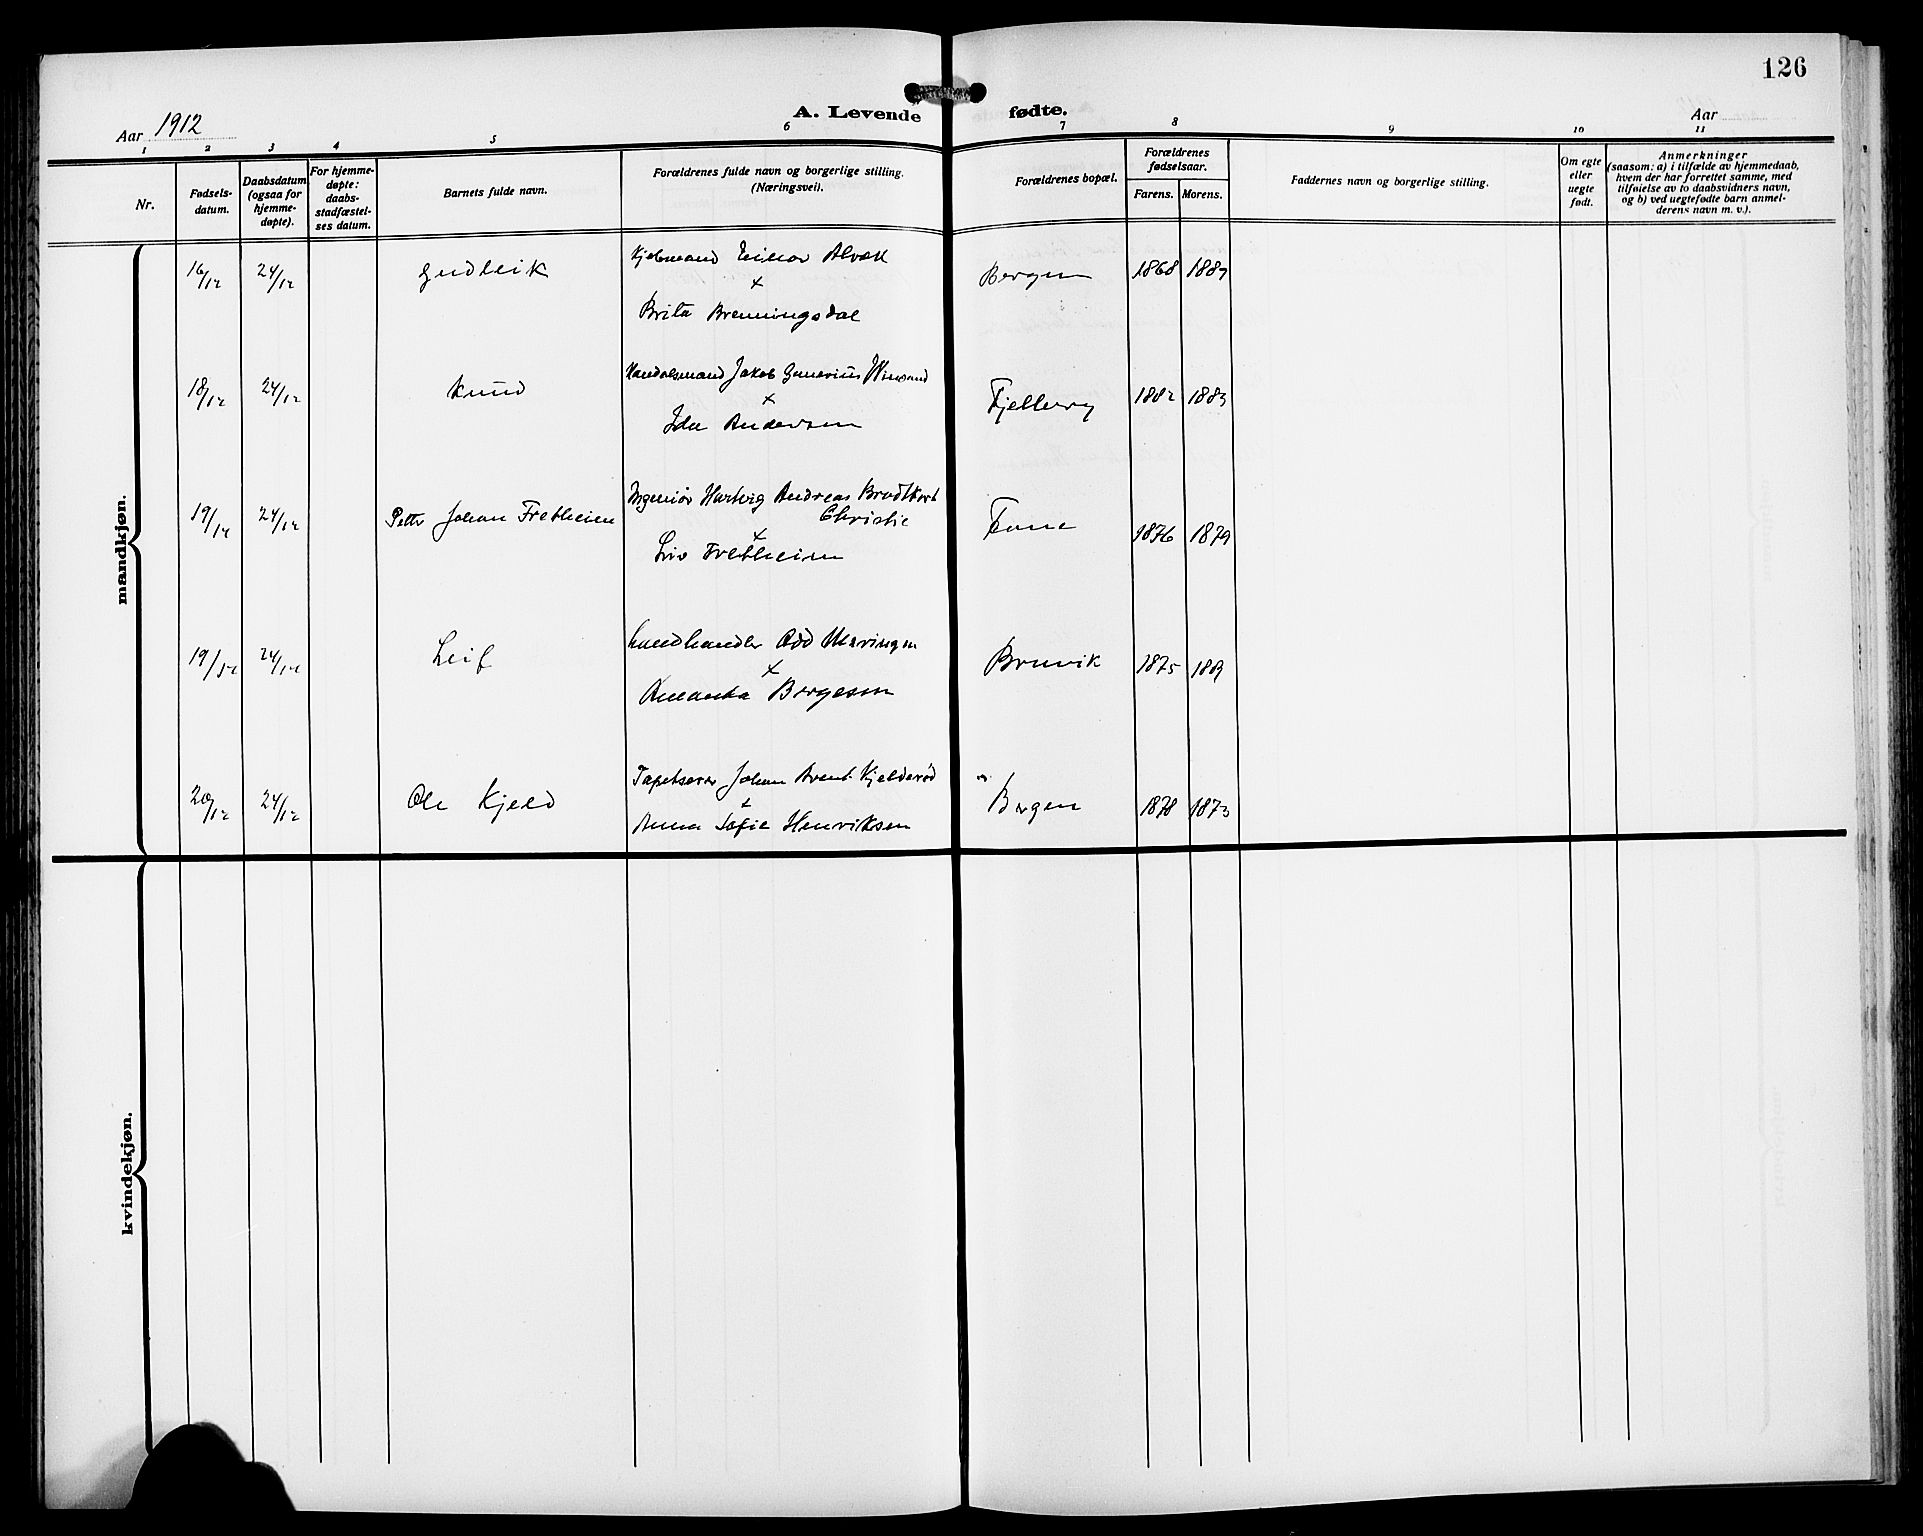 126
A. Levende fødte.
Aar 1912
Aar
1 2 3 4 5 6 7 8 9 10 11
Nr.
Fødsels-
datum.
Daabsdatum
(ogsaa for
hjemme-
døpte).
For hjemme-
døpte:
daabs-
stadfæstel-
ses datum.
Barnets fulde navn.
Forældrenes fulde navn og borgerlige stilling.
(Næringsvei).
Forældrenes bopæl.
Forældrenes
fødselsaar.
Farens. Morens.
Faddernes navn og borgerlige stilling.
Om egte
eller
uegte
født.
Anmerkninger
(saasom: a) i tilfælde av hjemmedaab,
hvem der har forrettet samme, med
tilføielse av to daabsvidners navn,
og b) ved uegtefødte barn anmel-
derens navn m. v.).
mandkjøn.
16/12 24/12 Gudleik Einar Bergen 1868
x
Brita Brenningsdal
18/12 24/12 Knud Handelsmand Jakob 1882 1883
x
Ida Andersen
19/12 24/12 Petter Johan Fretheim Ingeniør Hartvig Andreas 1876 1879
Christie
x
Liv Fretheim
19/12 24/12 Leif Landhandler Odd Bruvik 1875
x
Amanda Børgesen
20/12 24/12 Ole Kjeld Tapetserer Johan Bernt Kjelderød Bergen 1878 1873
x
Anna Sofie Henriksen
kvindekjøn.